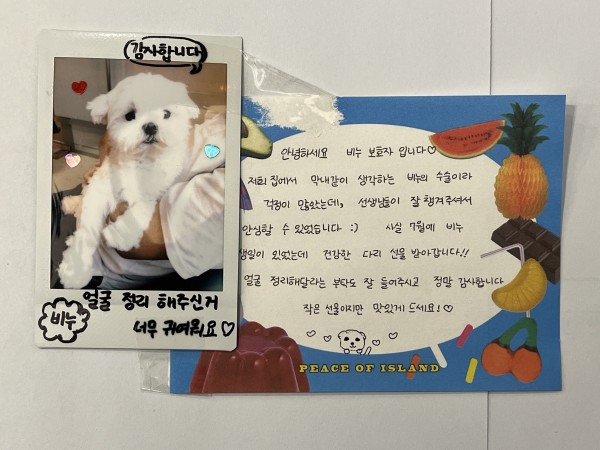 감사합니다
얼굴 정리 해주신거
비누
너무 귀여워요♡
안녕하세요 비누 보호자 입니다♡
저희 집에서 막내같이 생각하는 비누의 수술이라
걱정이 많았는데, 선생님들이 잘 챙겨주셔서
안심할 수 있었습니다 :) 사실 7월에 비누
생일이 있었는데 건강한 다리 선물 받아갑니다!!
얼굴 정리해달라는 부탁도 잘 들어주시고 정말 감사합니다
작은 선물이지만 맛있게 드세요!♡
PEACE OF ISLAND